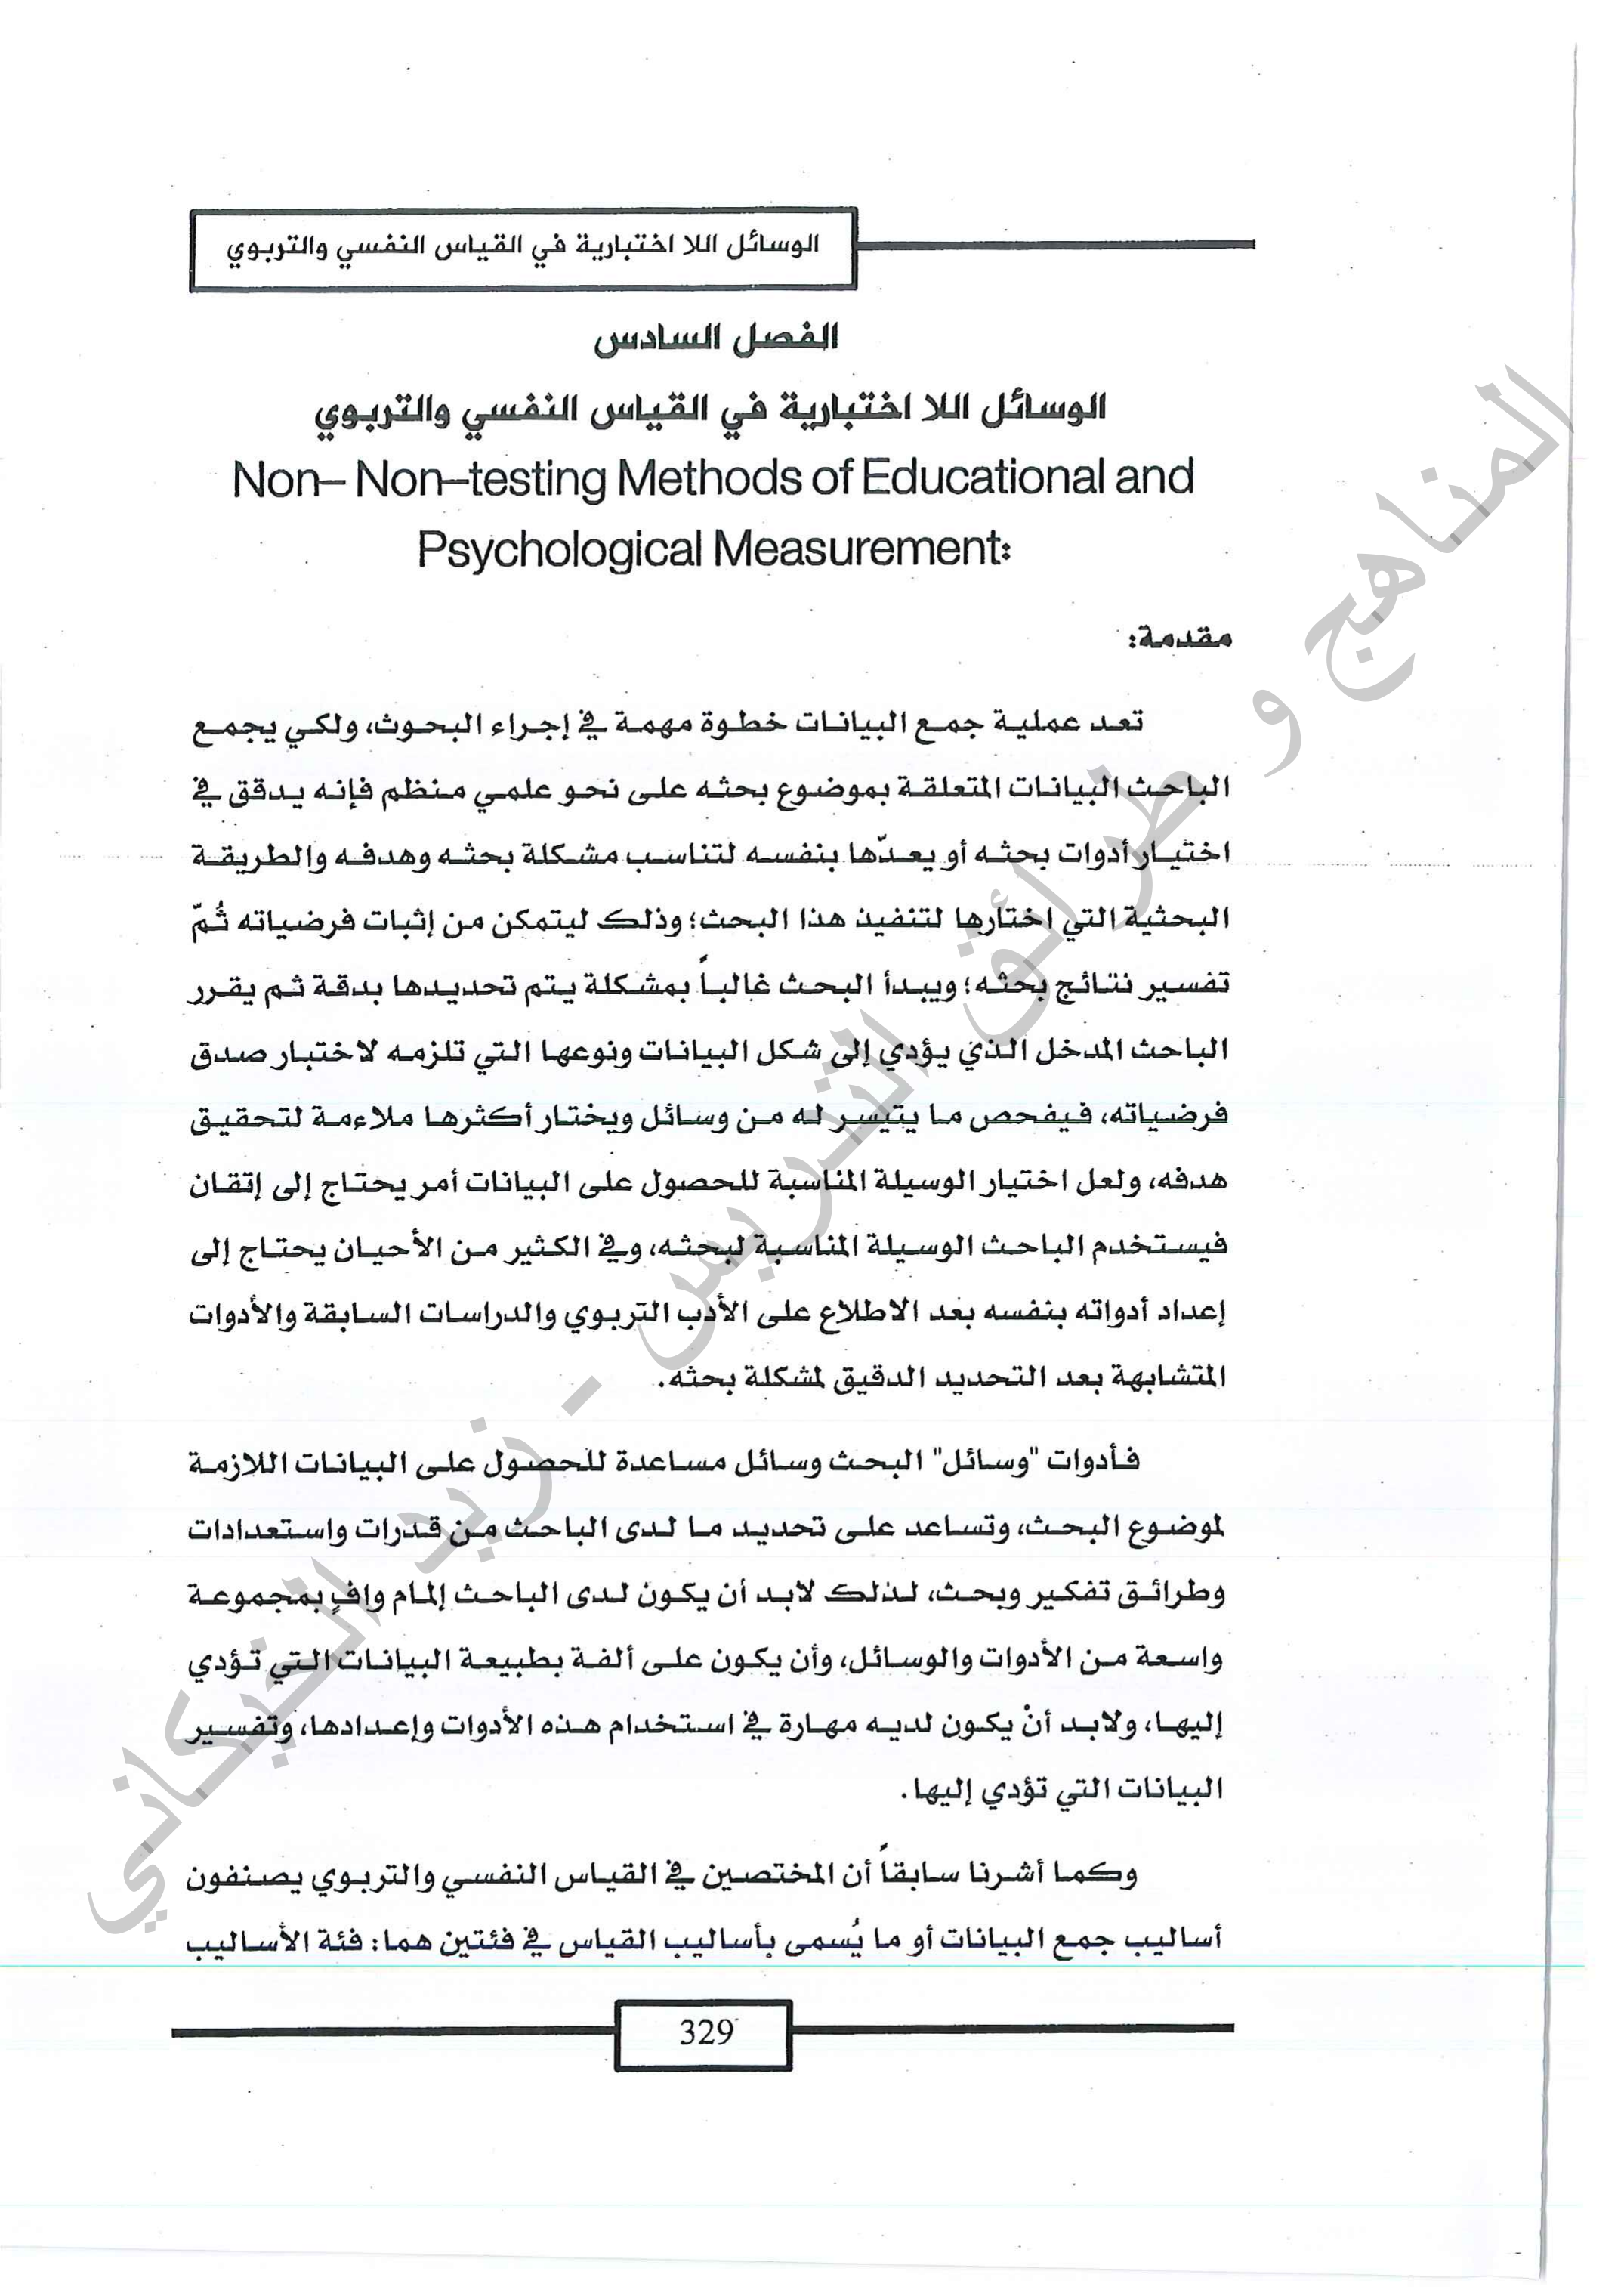 الوسائل اللا اختبارية في القياس النفسي والتربوي
الفصل السادس
الوسائل اللا اختبارية في القياس النفسي والتربوي
Non– Non–testing Methods of Educational and
Psychological Measurement:
مقدمة:
تعد عملية جمع البيانات خطوة مهمة في إجراء البحوث، ولكي يجمع
الباحث البيانات المتعلقة بموضوع بحثه على نحو علمي منظم فإنه يدقق في
اختيار أدوات بحثه أو يعدّها بنفسه لتناسب مشكلة بحثه وهدفه والطريقة
البحثية التي اختارها لتنفيذ هذا البحث؛ وذلك ليتمكن من إثبات فرضياته ثُمّ
تفسير نتائج بحثه؛ ويبدأ البحث غالباً بمشكلة يتم تحديدها بدقة ثم يقرر
الباحث المدخل الذي يؤدي إلى شكل البيانات ونوعها التي تلزمه لاختبار صدق
فرضياته، فيفحص ما يتيسر له من وسائل ويختار أكثرها ملاءمة لتحقيق
هدفه، ولعل اختيار الوسيلة المناسبة للحصول على البيانات أمر يحتاج إلى إتقان
فيستخدم الباحث الوسيلة المناسبة لبحثه، وفي الكثير من الأحيان يحتاج إلى
إعداد أدواته بنفسه بعد الاطلاع على الأدب التربوي والدراسات السابقة والأدوات
المتشابهة بعد التحديد الدقيق لمشكلة بحثه.
فأدوات "وسائل" البحث وسائل مساعدة للحصول على البيانات اللازمة
لموضوع البحث، وتساعد على تحديد ما لدى الباحث من قدرات واستعدادات
وطرائق تفكير وبحث، لذلك لابد أن يكون لدى الباحث إلمام وافٍ بمجموعة
واسعة من الأدوات والوسائل، وأن يكون على ألفة بطبيعة البيانات التي تؤدي
إليها، ولابد أنْ يكون لديه مهارة في استخدام هذه الأدوات وإعدادها، وتفسير
البيانات التي تؤدي إليها.
وكما أشرنا سابقاً أن المختصين في القياس النفسي والتربوي يصنفون
أساليب جمع البيانات أو ما يُسمى بأساليب القياس في فئتين هما: فئة الأساليب
329
المناهج و طرائق التدريس - زيد الخيكاني